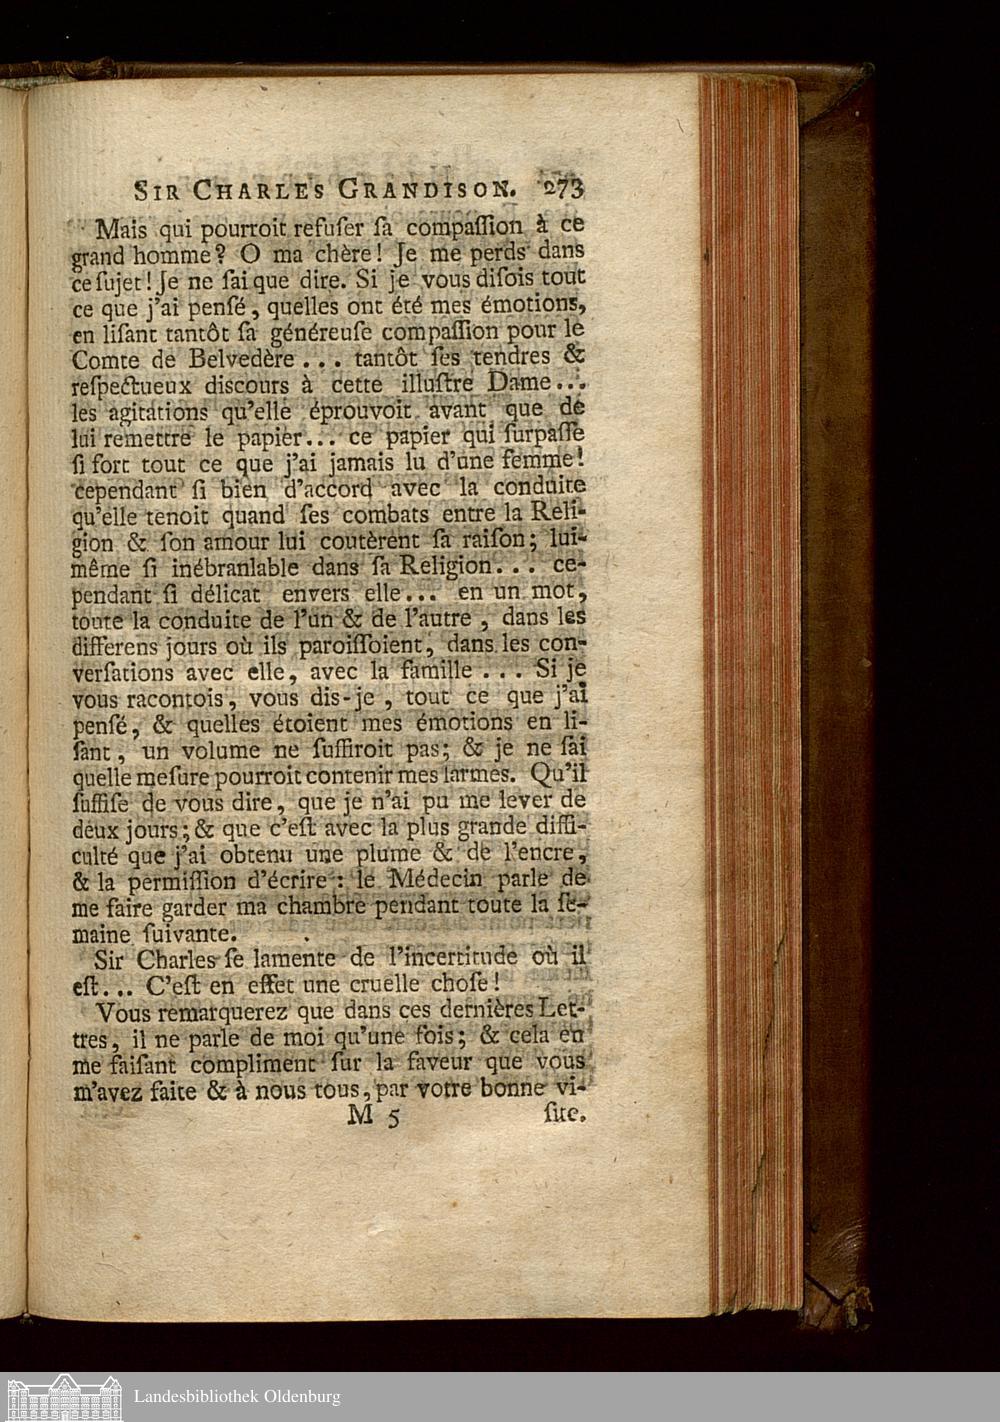 SIR CHARLES GRANDISON. 273
Mais qui pourroit refuſer ſa compaſſion à ce
grand homme? O ma chère! Je me perds dans
ce ſujet! Je ne ſai que dire. Si je vous diſois tout
ce que j'ai penſé, quelles ont été mes émotions,
en liſant tantôt ſa généreuſe compaſſion pour le
Comte de Belvedère... tantôt ſes tendres &
reſpectueux diſcours à cette illuſtre Dame...
les agitations qu'elle éprouvoit avant que de
lui remettre le papier... ce papier qui ſurpaſſe
ſi fort tout ce que j'ai jamais lu d'une femme!
cependant ſi bien d'accord avec la conduite
qu'elle tenoit quand ſes combats entre la Reli-
gion & ſon amour lui coutèrent ſa raiſon; lui-
même ſi inébranlable dans ſa Religion... ce-
pendant ſi délicat envers elle... en un mot,
toute la conduite de l'un & de l'autre, dans les
differens jours où ils paroiſſoient, dans les con-
verſations avec elle, avec la famille... Si je
vous racontois, vous dis-je, tout ce que j'ai
penſé, & quelles étoient mes émotions en li-
ſant, un volume ne ſuffiroit pas; & je ne ſai
quelle meſure pourroit contenir mes larmes. Qu'il
ſuffiſe de vous dire, que je n'ai pu me lever de
deux jours; & que c'eſt avec la plus grande diffi-
culté que j'ai obtenu une plume & de l'encre,
& la permiſſion d'écrire: le Médecin parle de
me faire garder ma chambre pendant toute la ſe-
maine ſuivante.
Sir Charles ſe lamente de l'incertitude où il
eſt... C'eſt en effet une cruelle choſe!
Vous remarquerez que dans ces dernières Let-
tres, il ne parle de moi qu'une fois; & cela en
me faiſant compliment ſur la faveur que vous
m'avez faite & à nous tous, par votre bonne vi-
M 5 ſite.
Landesbibliothek Oldenburg